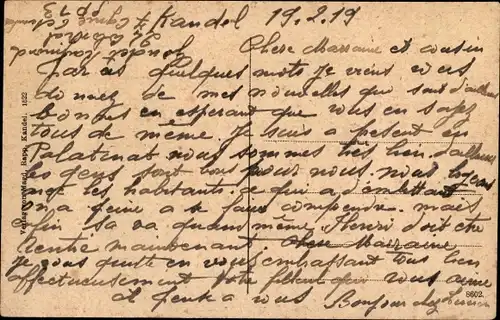 Kandel 19.2.19
Chère Marraine et cousin
par ces quelques mots je viens vous
donnez de mes nouvelles qui sont d'ailleurs
bonnes en esperant que vous en soyez
tous de même. Je suis a present en
Palatenat nous sommes très bien d'ailleurs
les gens sont tous pour nous. nous
les habitants. ce qui a d'embettant
on a peine a se faire comprendre. mais
fin sa va quand même. Henri doit etre
rentré maintenant Chere Marraine
je vous quitte en vous embrassant tous bien
affectueusement votre filleul qui vous aime
il pense a vous Bonjour chez Lucien
Verlag von Maud. Rapp, Kandel. 1622
8602